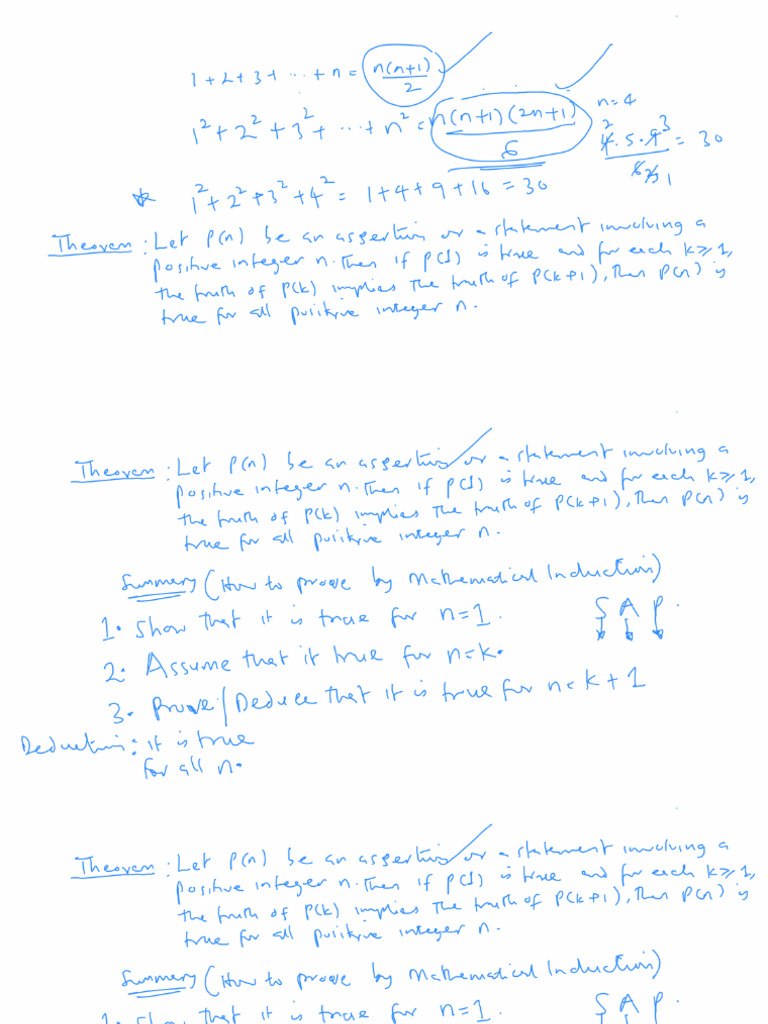 1+2+3+ ... +n = n(n+1)/2
1² + 2² + 3² + ... + n² = n(n+1)(2n+1)/6
n=4
4·5·9/6 = 30
2 3 1
* 1² + 2² + 3² + 4² = 1+4+9+16 = 30
Theorem: Let P(n) be an assertion or a statement involving a
positive integer n. Then if P(1) is true and for each k≥1,
the truth of P(k) implies the truth of P(k+1), then P(n) is
true for all positive integer n.
Theorem: Let P(n) be an assertion or a statement involving a
positive integer n. Then if P(1) is true and for each k≥1,
the truth of P(k) implies the truth of P(k+1), then P(n) is
true for all positive integer n.
Summary (How to prove by Mathematical Induction)
1. Show that it is true for n=1. S A P.
2. Assume that it true for n=k.
3. Prove/Deduce that it is true for n=k+1
Deduction: it is true
for all n.
Theorem: Let P(n) be an assertion or a statement involving a
positive integer n. Then if P(1) is true and for each k≥1,
the truth of P(k) implies the truth of P(k+1), then P(n) is
true for all positive integer n.
Summary (How to prove by Mathematical Induction)
1. Show that it is true for n=1. S A P.